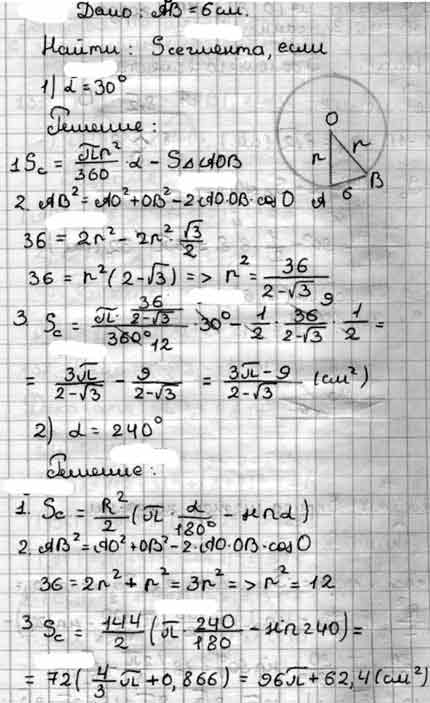 Дано: AB = 6 см.
Найти: Sсегмента, если
1) α = 30°
Решение:
1. Sc = πr²/360 · α − S△AOB
2. AB² = AO² + OB² − 2AO·OB·cosO
36 = 2r² − 2r² · √3/2
36 = r²(2−√3) => r² = 36/(2−√3)
3. Sc = (π · 36/(2−√3))/360° 12 · 30° − 1/2 · 36/(2−√3) 9 · 1/2 =
= 3π/(2−√3) − 9/(2−√3) = (3π−9)/(2−√3) (см²)
O
r r
A 6 B
2) α = 240°
Решение:
1. Sc = R²/2 (π · α/180° − sinα)
2. AB² = AO² + OB² − 2·AO·OB·cosO
36 = 2r² + r² = 3r² => r² = 12
3 Sc = 144/2 (π · 240/180 − sin240) =
= 72(4/3 π + 0,866) = 96π + 62,4 (см²)